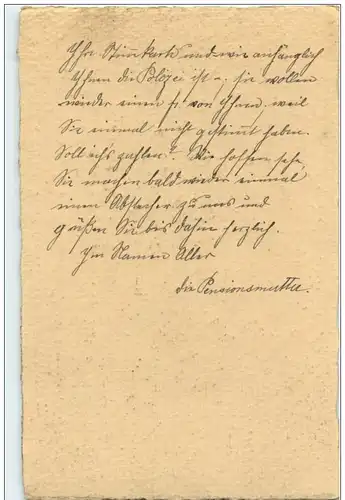 Ihre Stimmkarte und wie anhänglich
Ihnen die Polizei ist –, sie wollen
wieder einen fr von Ihnen, weil
Sie einmal nicht gestimmt haben.
Soll ich's zahlen? Wir hoffen sehr
Sie machen bald wieder einmal
einen Abstecher zu uns und
grüßen Sie bis dahin herzlich.
Im Namen Aller
die Pensionsmutter.